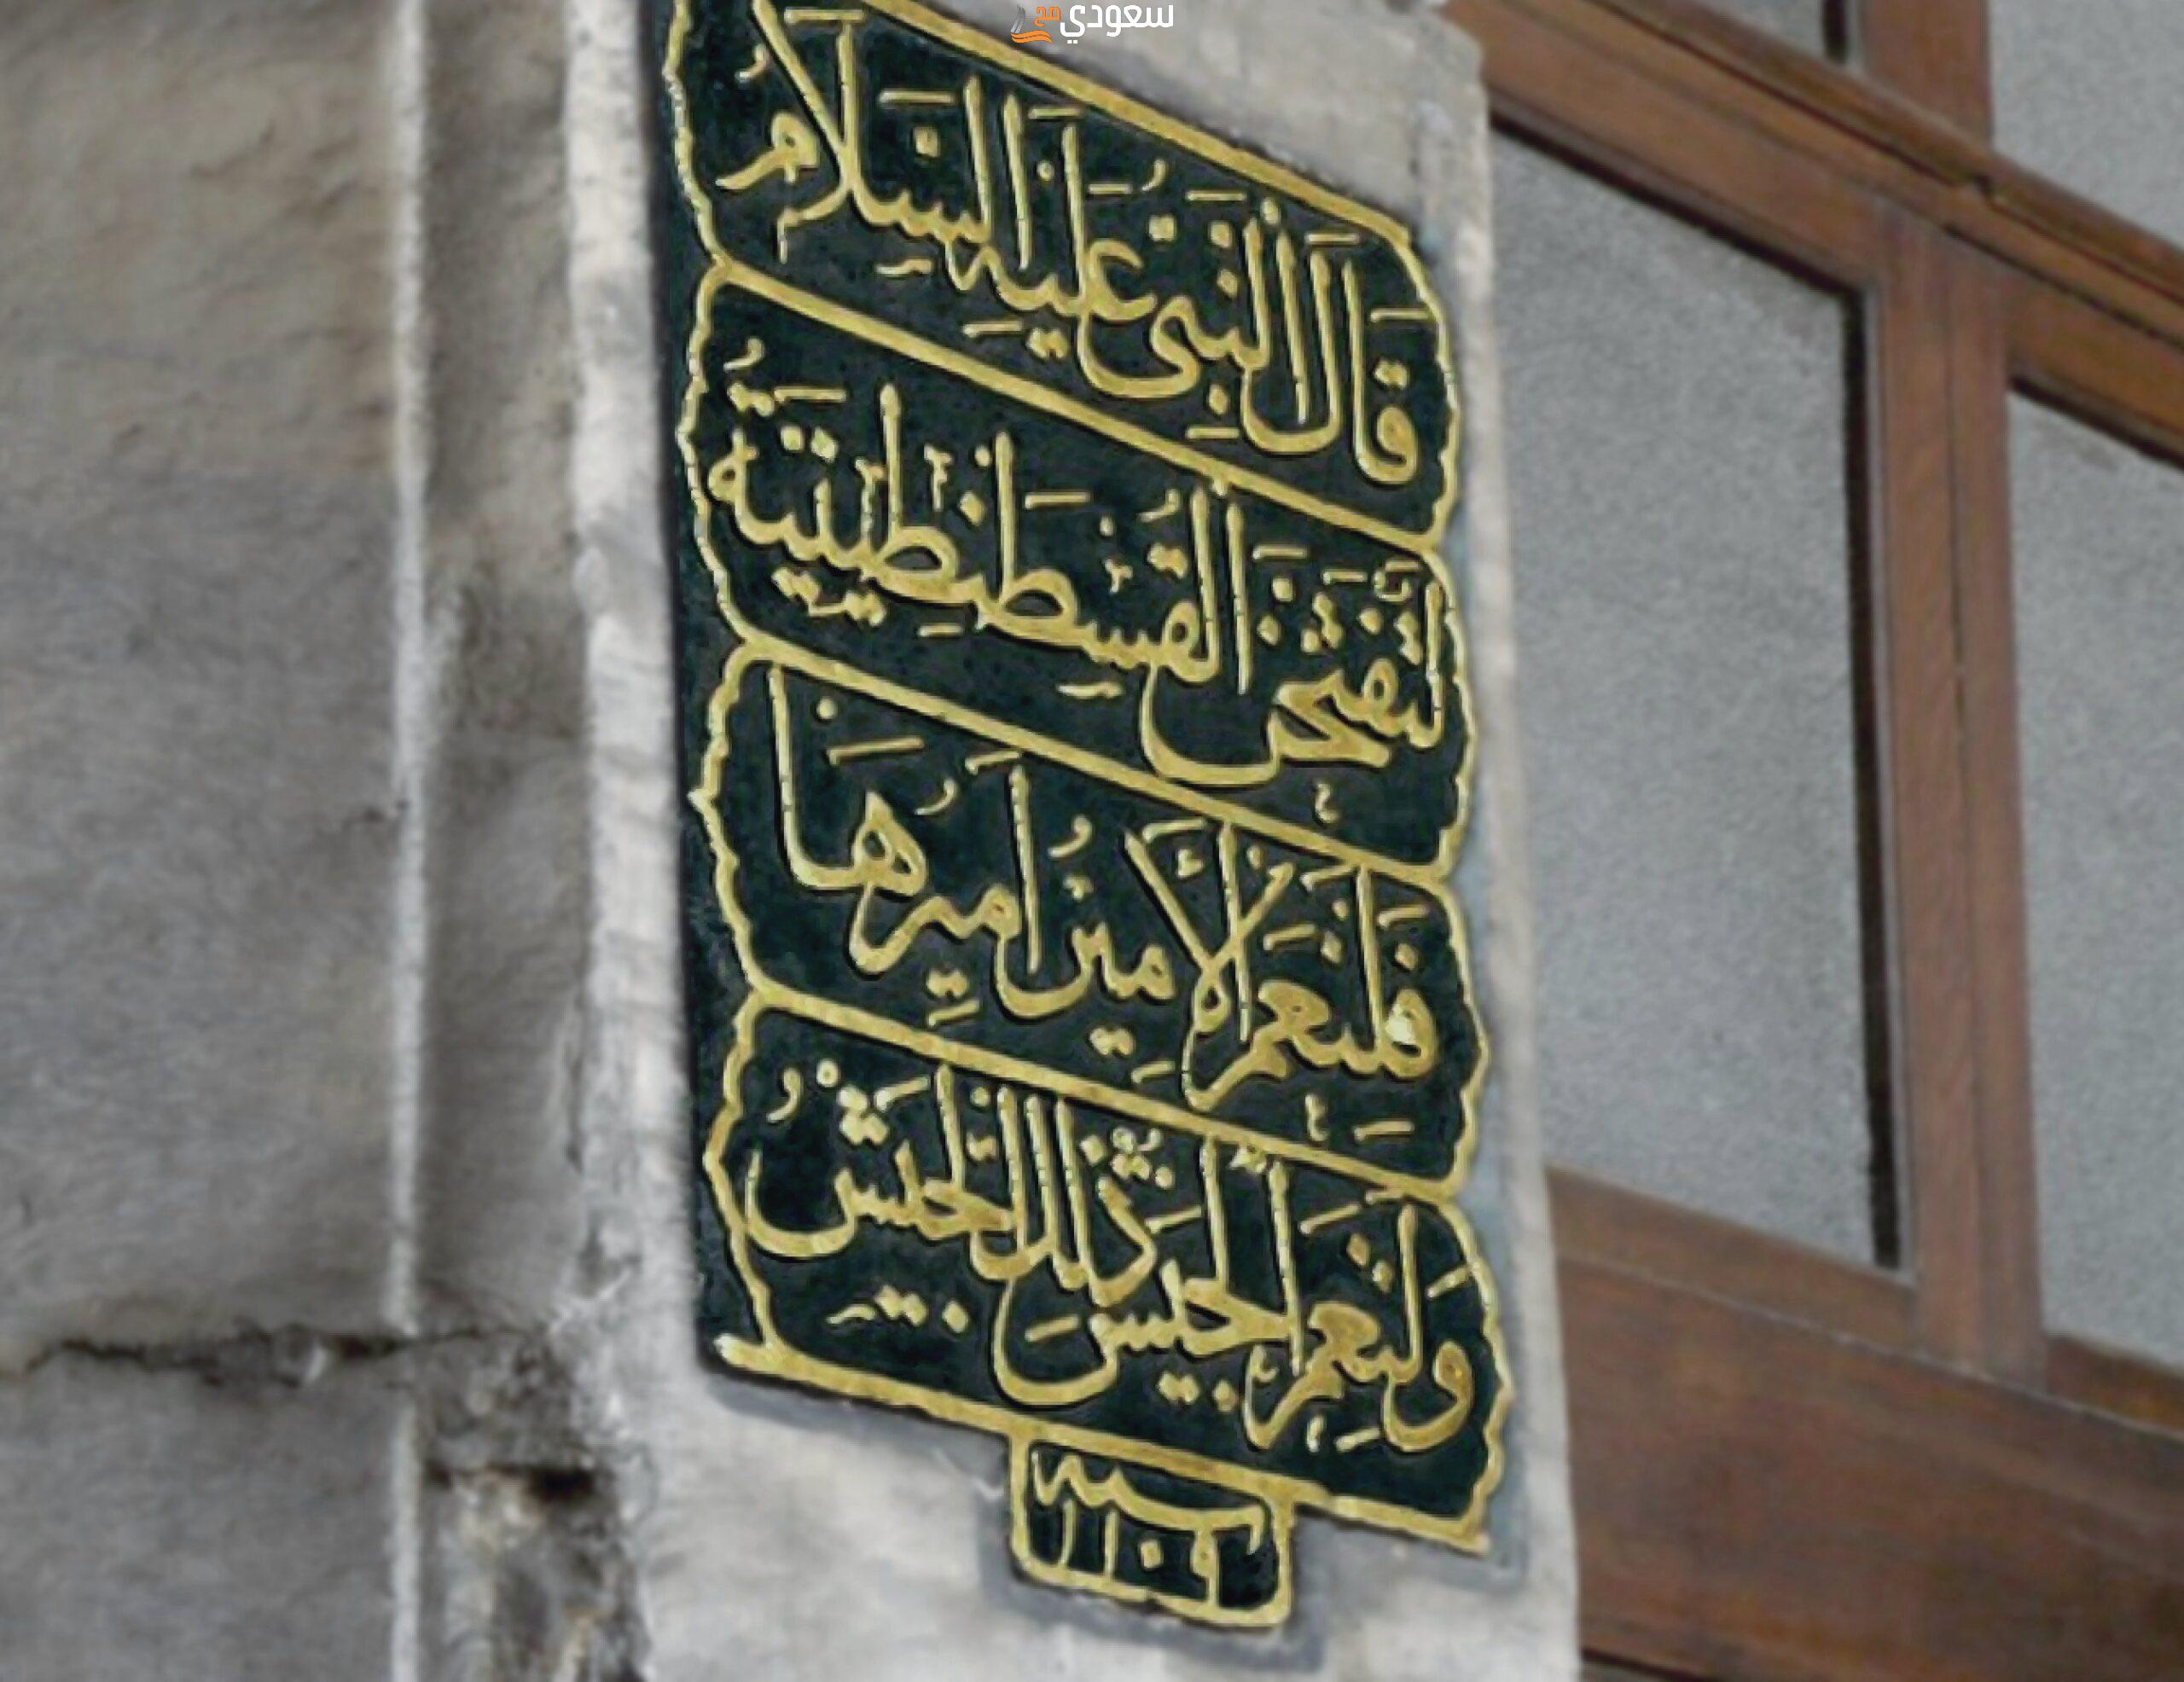 سعودي مح
قَالَ النَّبِيُّ عَلَيْهِ السَّلَامُ
لَتُفْتَحَنَّ الْقُسْطَنْطِينِيَّةُ
فَلَنِعْمَ الْأَمِينُ أَمِيرُهَا
وَلَنِعْمَ الْجَيْشُ ذَلِكَ الْجَيْشُ
سنه